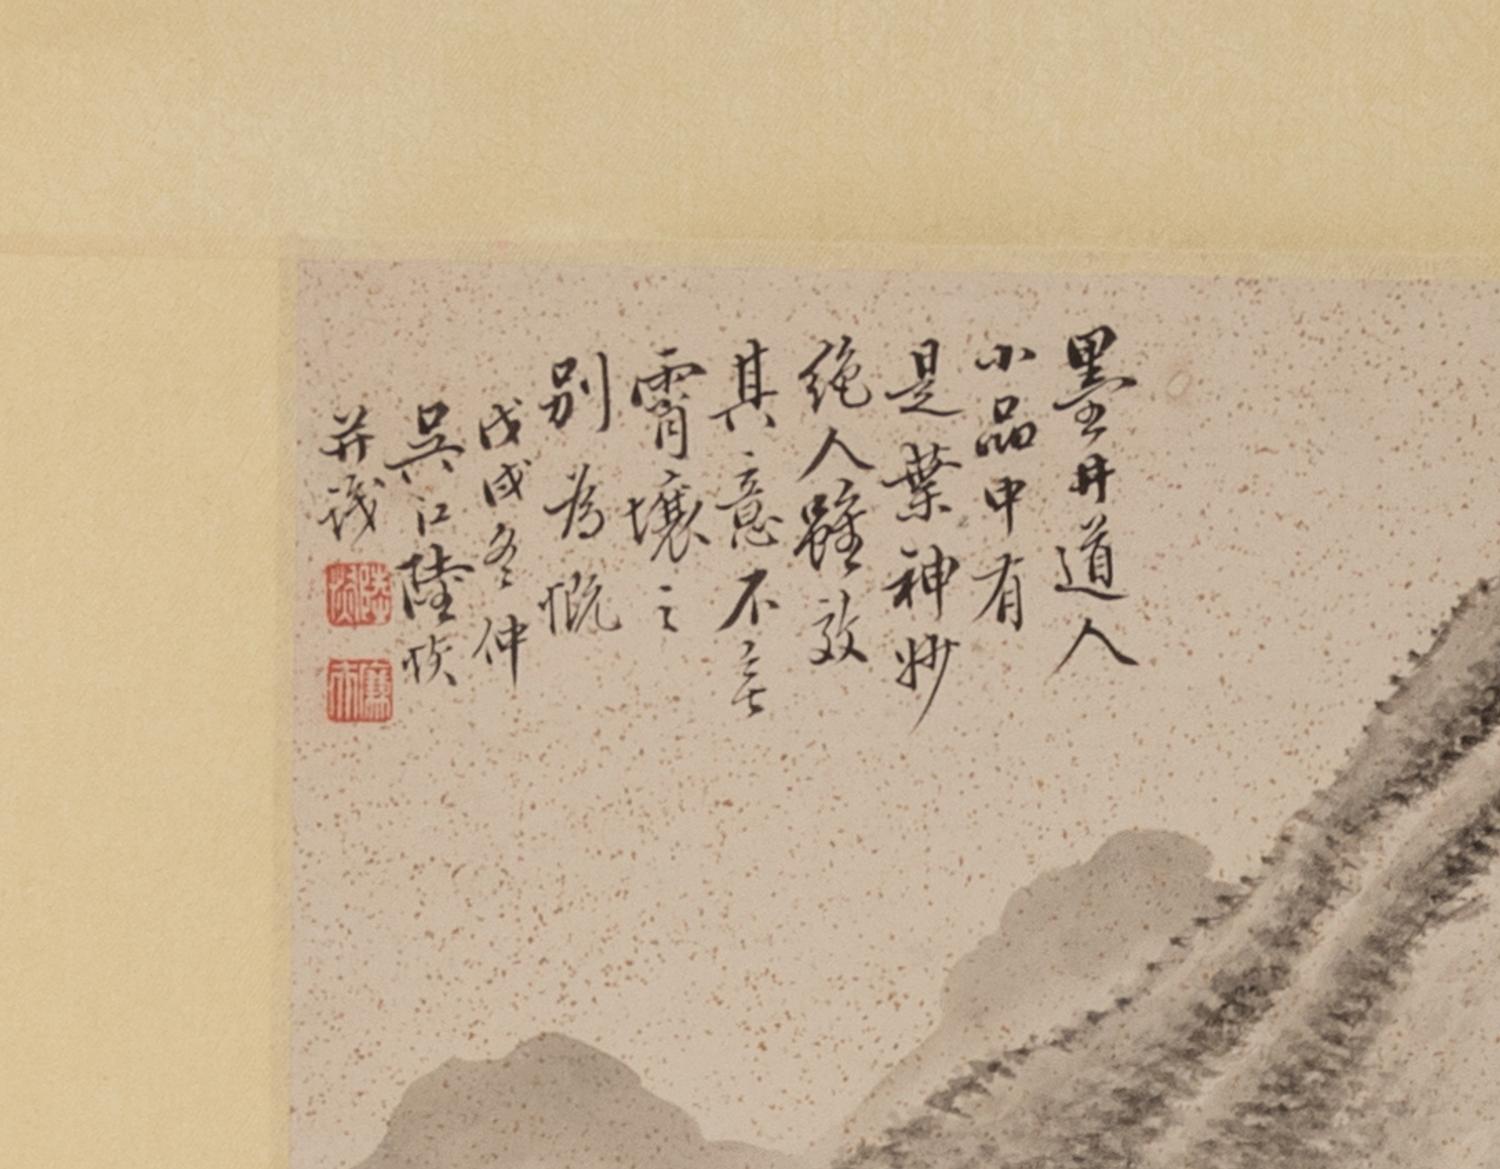 墨井道人
小品中有
是葉神妙
絶人雖效
其意不無
霄壤之
別為慨
戊戌冬仲
吳江陸恢
并識